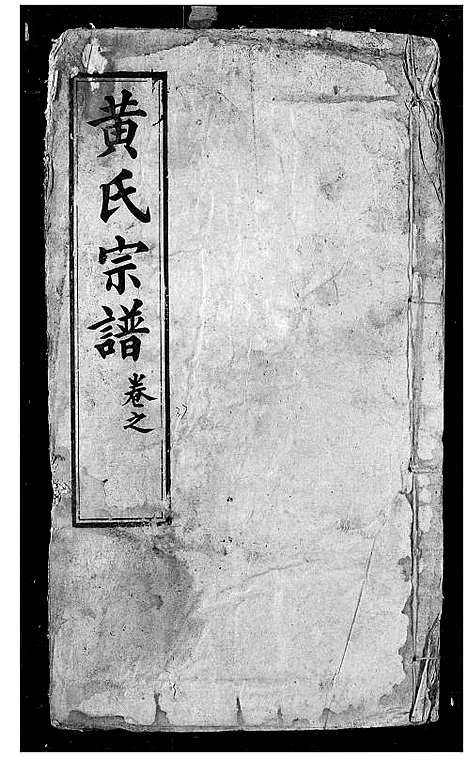 黄氏宗譜
卷之